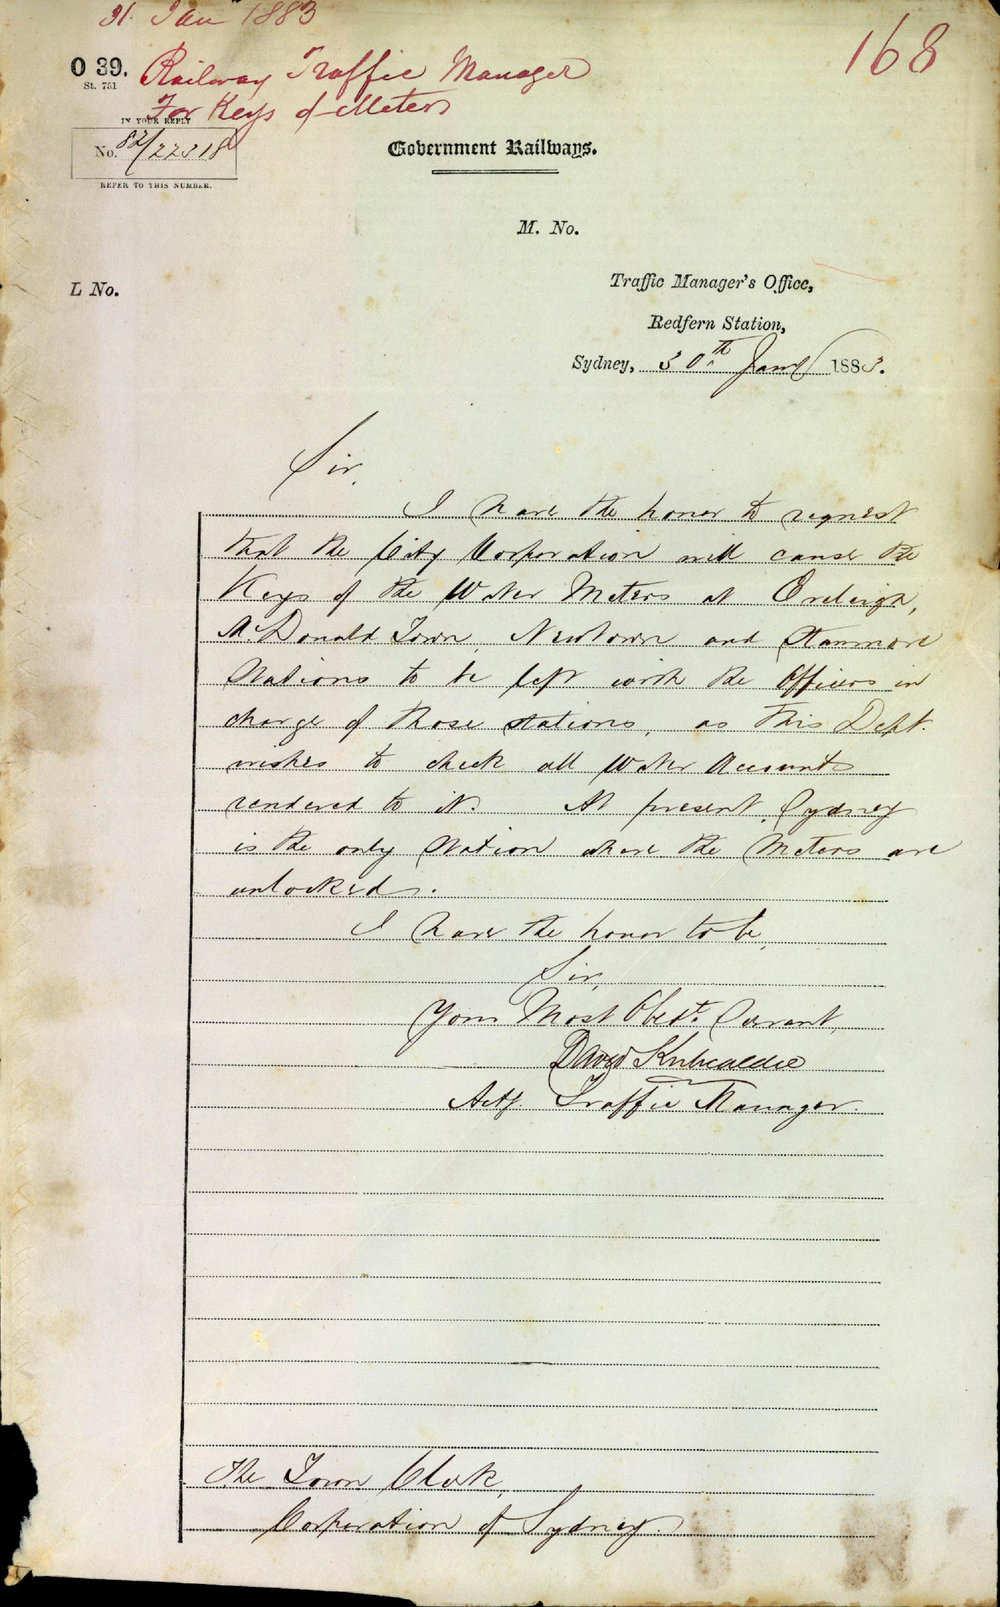 31. Jan 1883
168
O 39.
St. 751
Railway Traffic Manager
For Keys of Meters
IN YOUR REPLY
No. 82/22318
REFER TO THIS NUMBER.
Government Railways.
M. No.
L No.
Traffic Manager's Office,
Redfern Station,
Sydney, 30th Jany 1883.
Sir,
I have the honor to request
that the City Corporation will cause the
Keys of the Water Meters at Eveleigh,
McDonald Town, Newtown and Stanmore
Stations to be left with the Officers in
charge of those stations, as this Dept.
wishes to check all Water Accounts
rendered to it. At present Sydney
is the only Station where the Meters are
unlocked.
I have the honor to be,
Sir,
Your Most Obedt. Servant,
David Kirkcaldie
Actg. Traffic Manager.
The Town Clerk,
Corporation of Sydney.